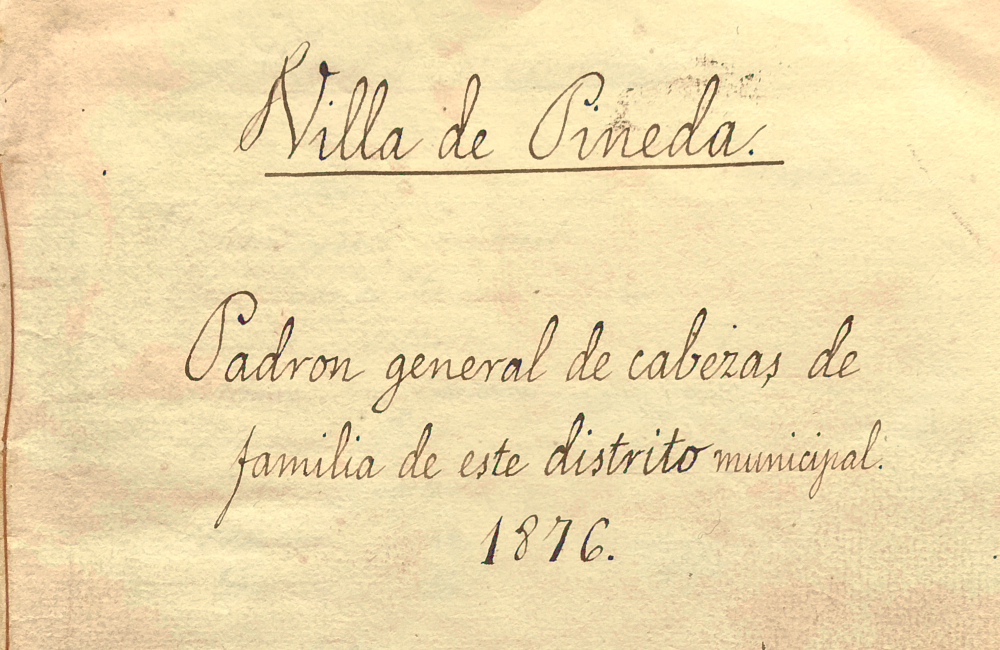 Villa de Pineda.
Padron general de cabezas de
familia de este distrito municipal.
1876.